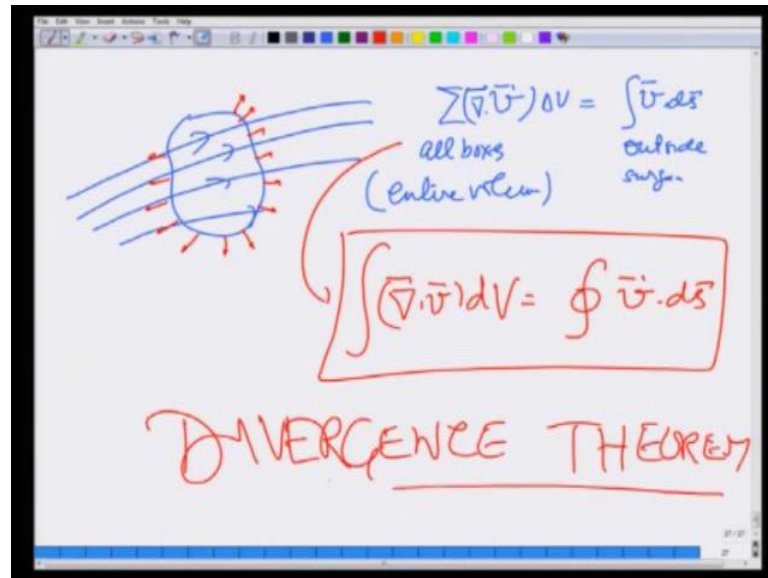 File Edit View Insert Actions Tools Help
∑(∇̄.v̄)ΔV = ∫v̄.ds̄
all boxes outside
(entire volum)
∫(∇̄.v̄)dV = ∮ v̄.ds̄
DIVERGENCE THEOREM
27 / 27
27